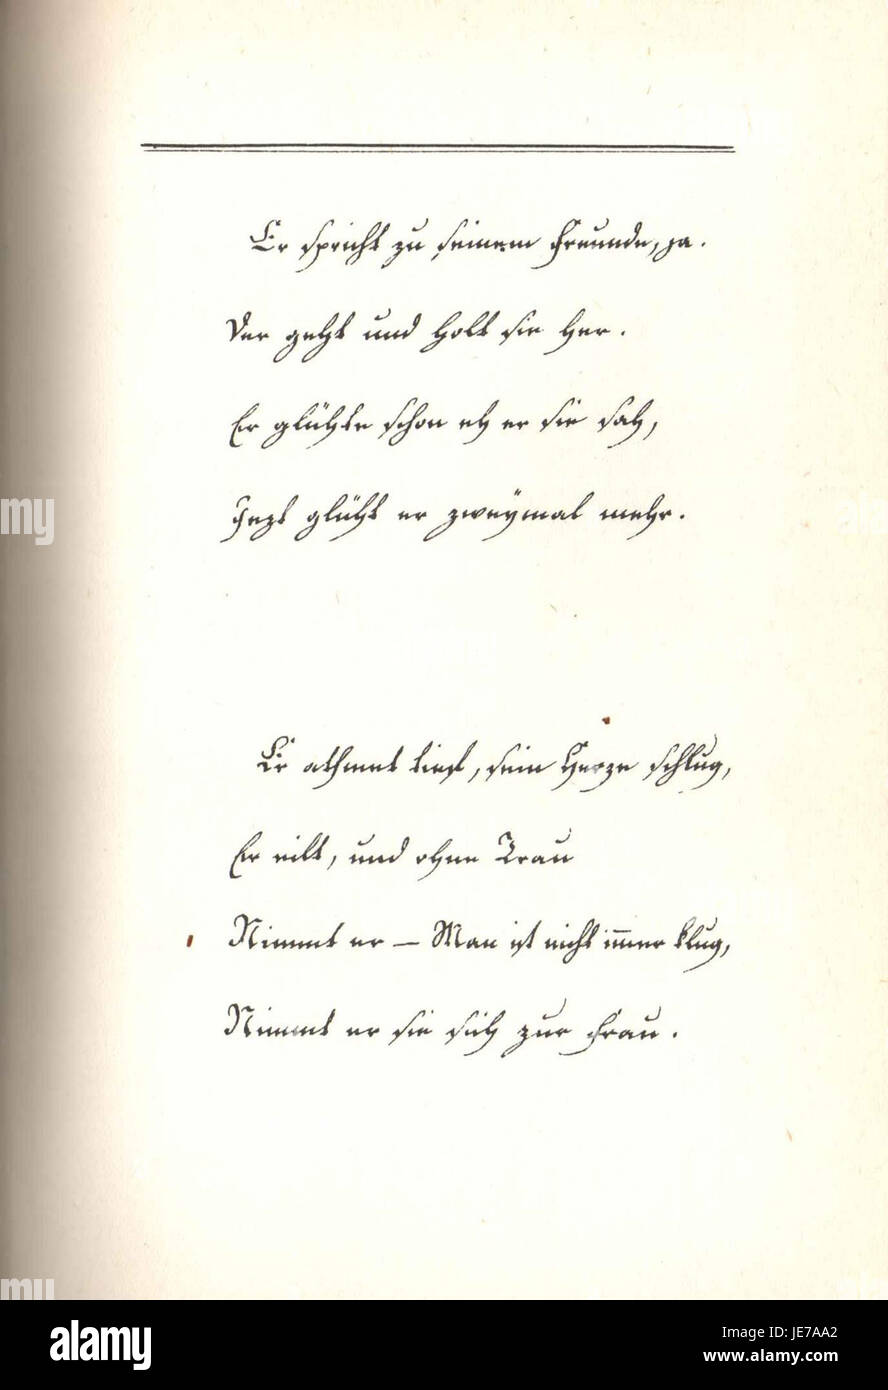 Er spricht zu seinem Freunde, ja.
Der geht und holt sie her.
Er glühte schon eh er sie sah,
Jezt glüht er zweymal mehr.
Er athmet tief, sein Herze schlug,
Er eilt, und ohne Trau
Nimmt er – Man ist nicht immer klug,
Nimmt er sie sich zur Frau.
my
al
my
al
alamy
Image ID: JE7AA2
www.alamy.com